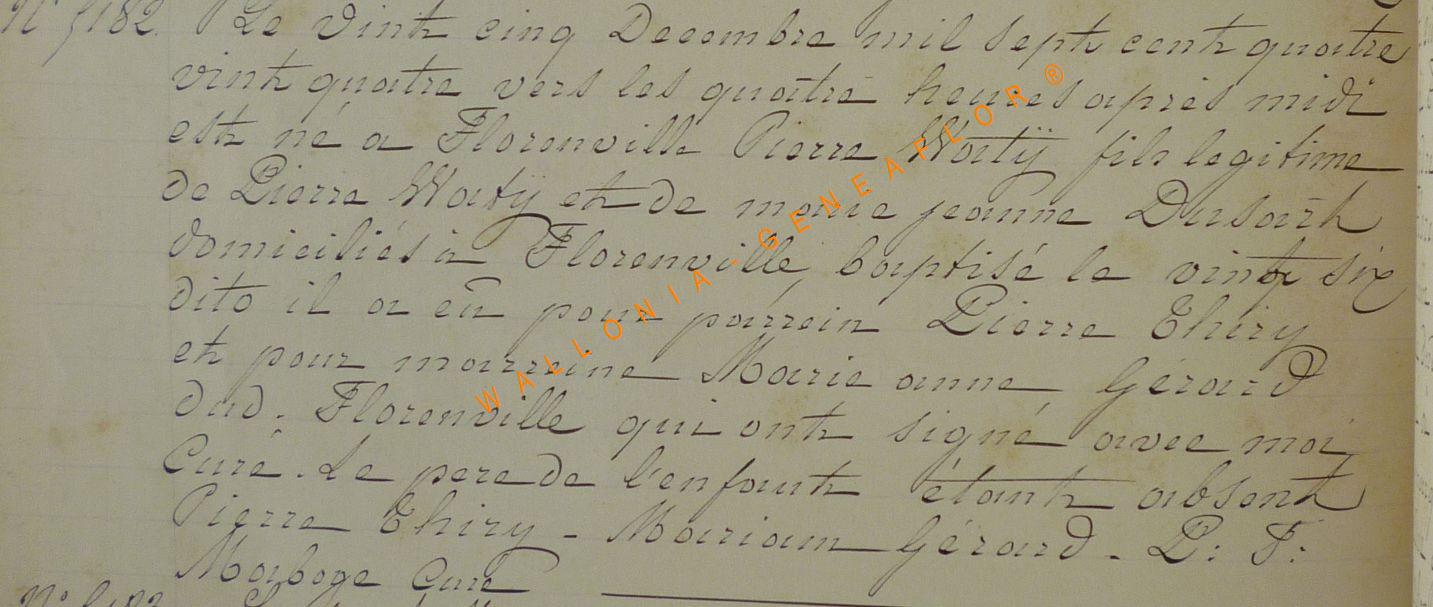 Nº 5182. Le vint cinq Decembre mil sept cent quatre
vint quatre vers les quatre heures apres midi
est né a Florenville Pierre Watÿ fils legitime
de Pierre Watÿ et de marie jeanne Dusart
domiciliés a Florenville, baptisé le vint six
dito il a eû pour parrein Pierre Thiry
et pour marreine Marie anne Gérard
dud. Florenville qui ont signé avec moi
Curé. Le pere de l'enfant étant absent
Pierre Thiry - Mariam Gérard. P: F:
Maboge Curé
WALLONIA - GENEAFLOR ®